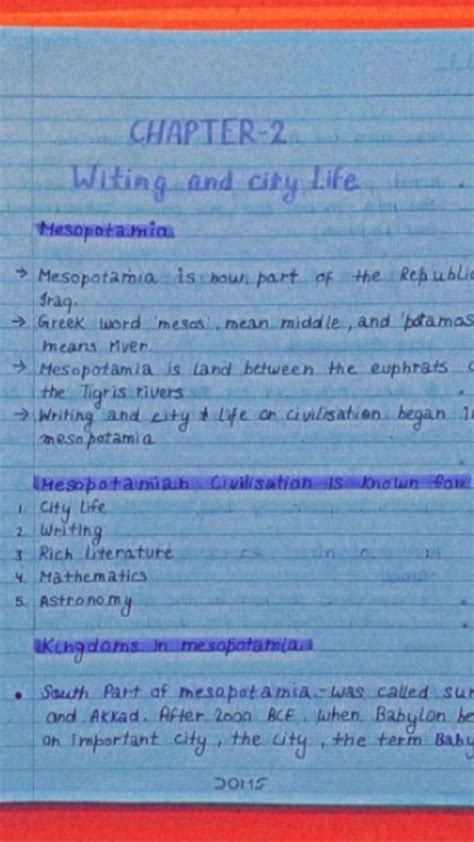 CHAPTER-2
Witing and city Life
Mesopotamia
→ Mesopotamia is now part of the Republic
Iraq.
→ Greek word 'mesos', mean middle, and 'potamos
means river
→ Mesopotamia is land between the euphrats
the Tigris rivers
→ Writing and city & life or civilisation began I
mesopotamia
Mesopotamian Civilisation Is known for
1. City life
2. Writing
3. Rich literature
4. Mathematics
5. Astronomy
Kingdoms In mesopotamia.
• South Part of mesopotamia - was called sum
and Akkad. After 2000 BCE, when Babylon be
an Important city, the city, the term Baby
DOMS